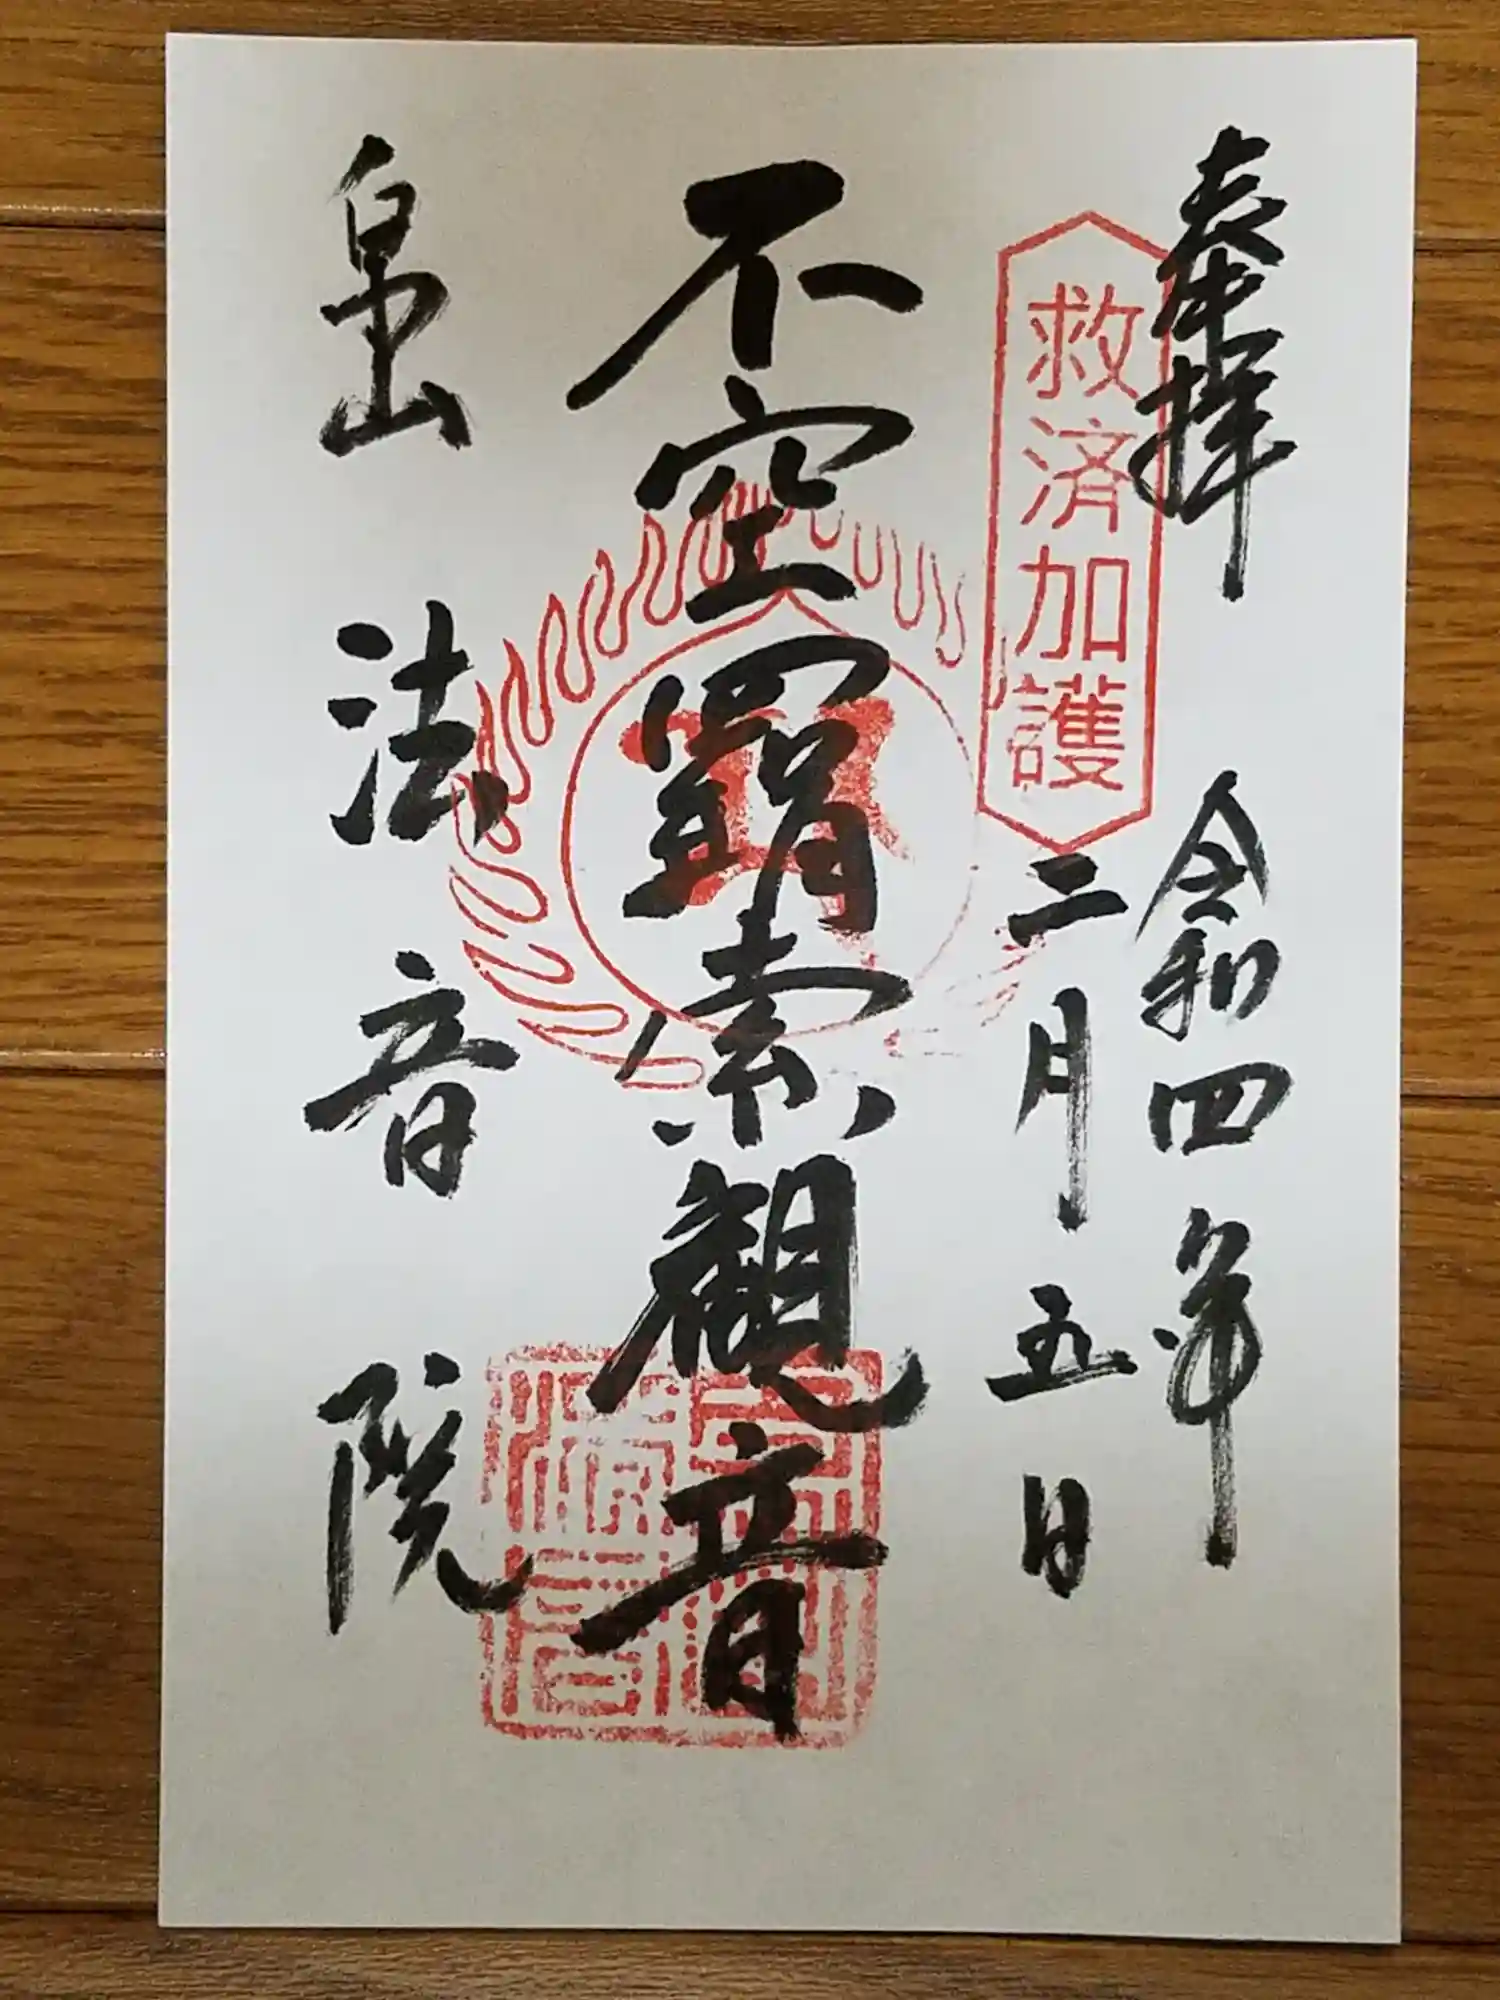 奉拝
令和四年
二月五日
救済加護
不空羂索観音
泉山
法音院